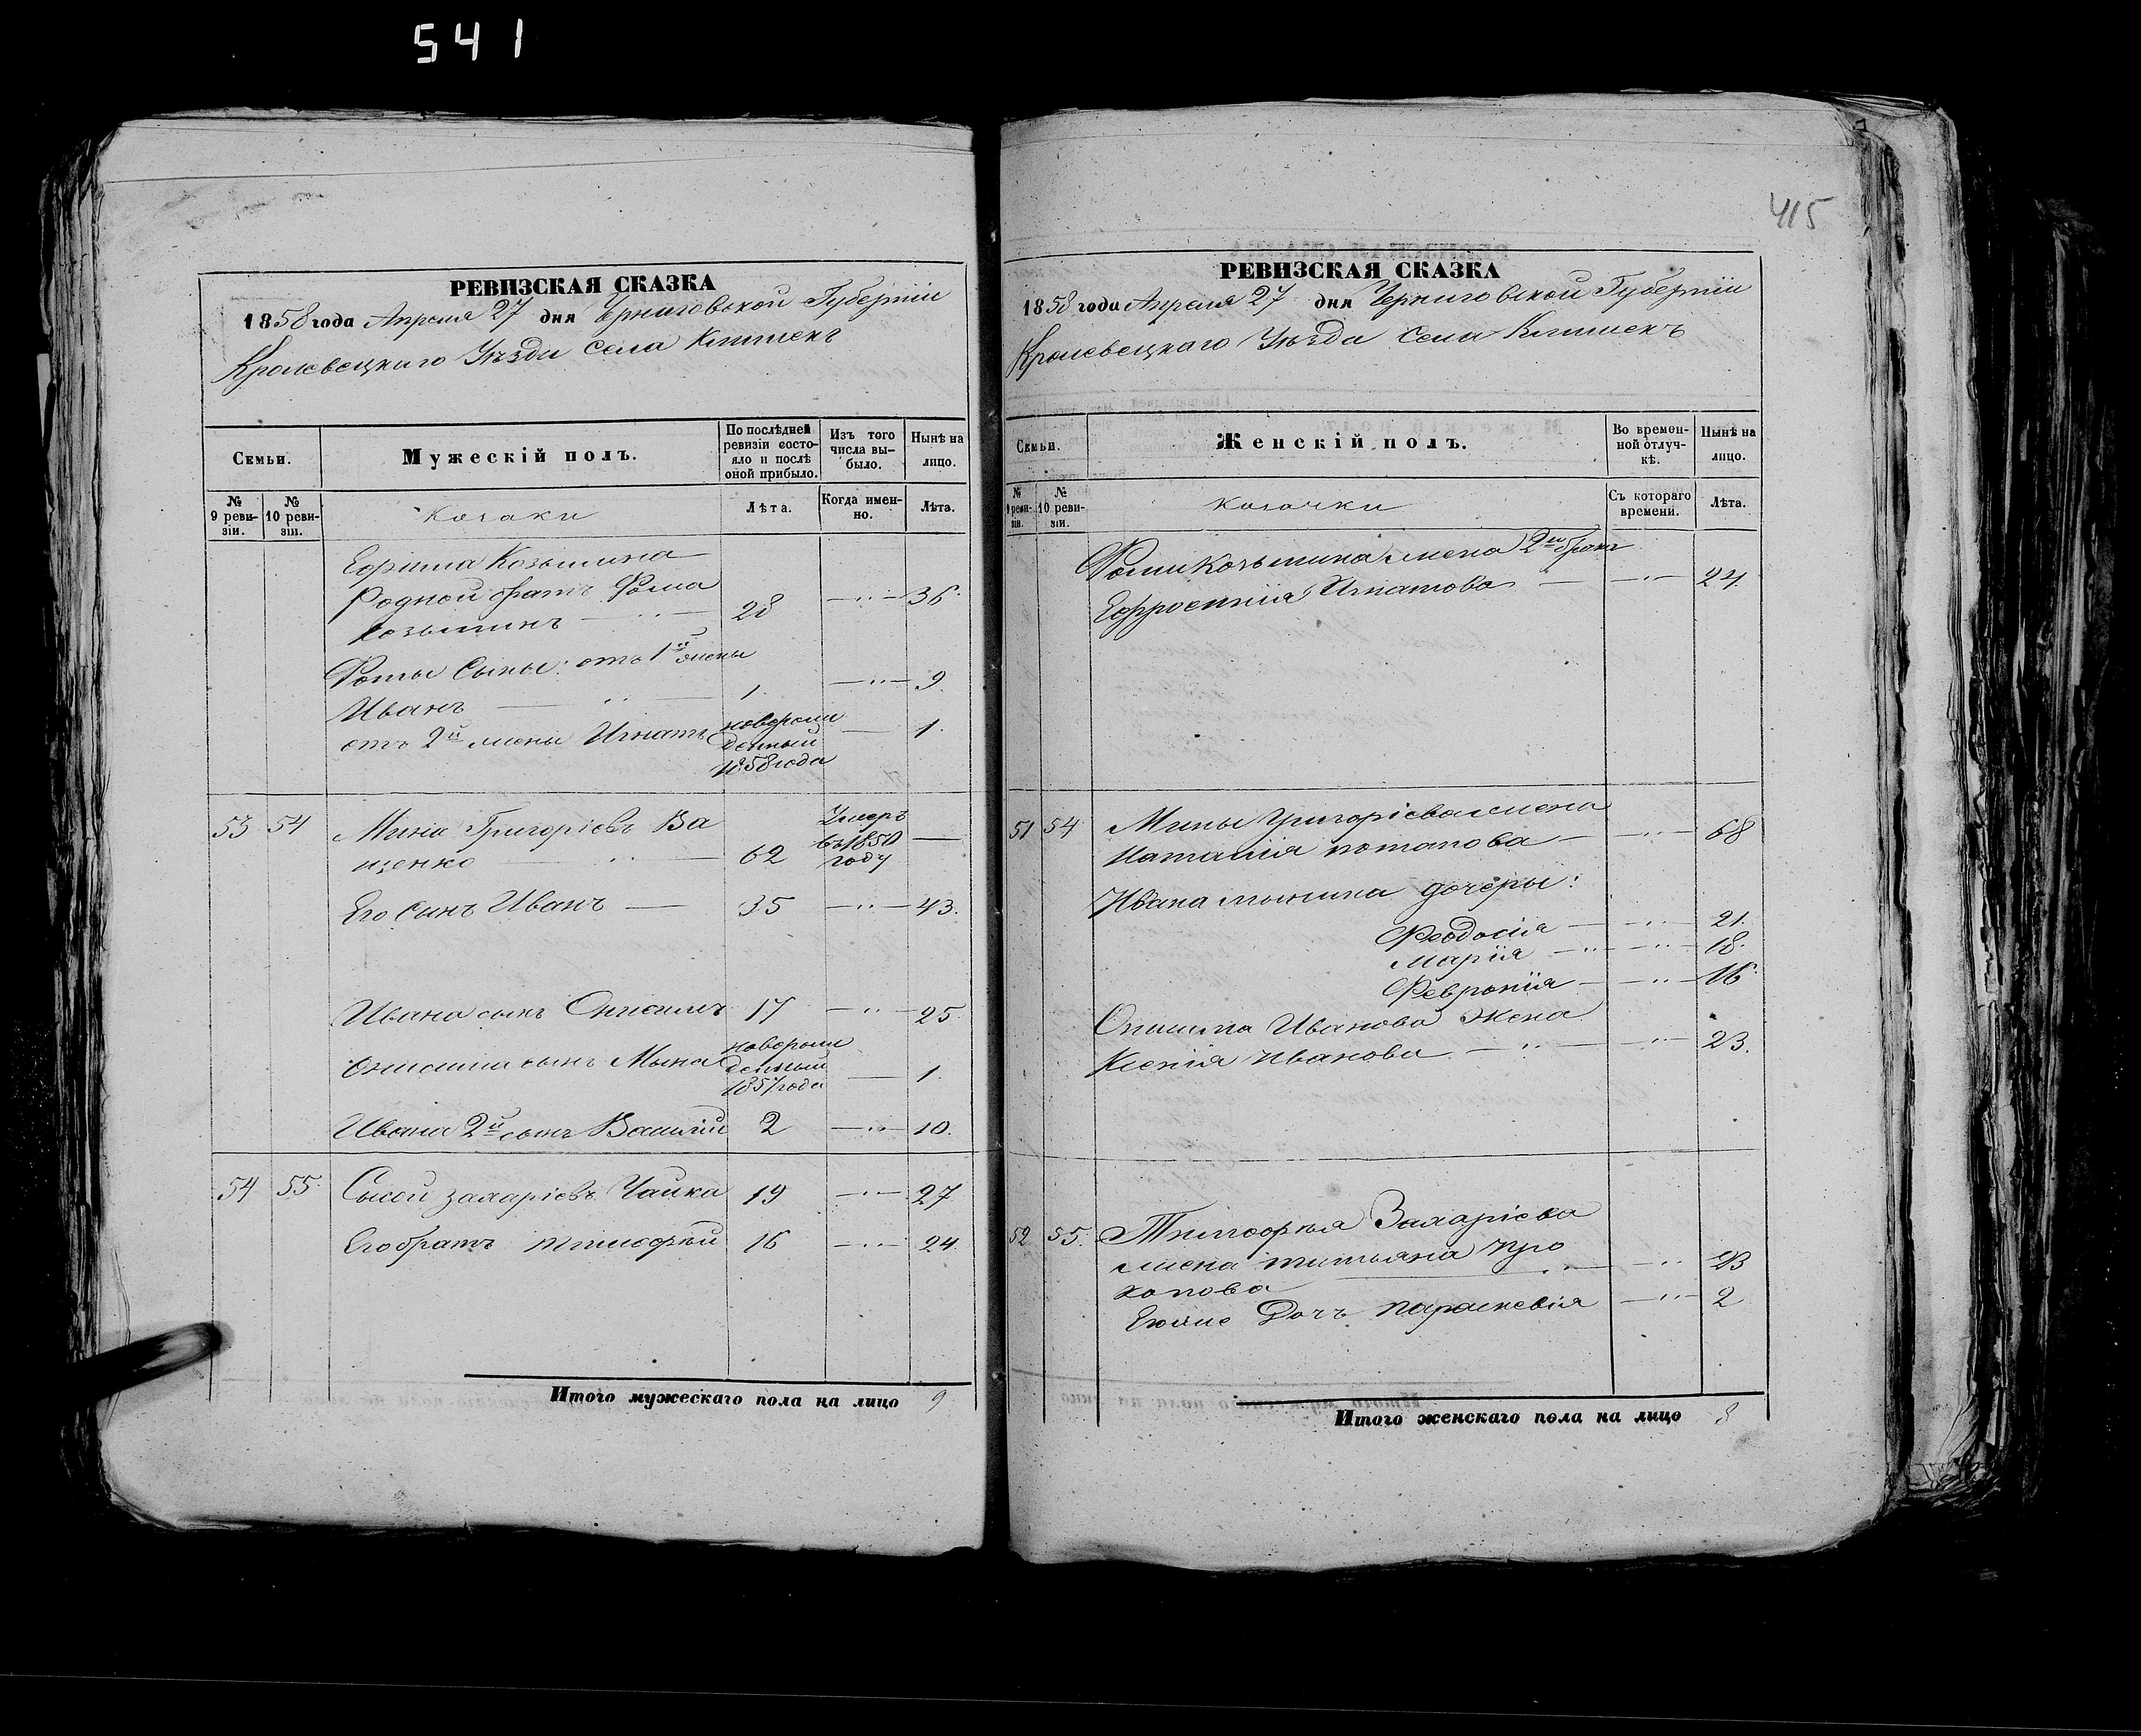 541
РЕВИЗСКАЯ СКАЗКА
1858 года Апреля 27 дня Черниговской Губерніи
Кролевецкого Уѣзда Села Клишекъ
Семьи.
Мужескій полъ.
По послѣдней ревизіи состояло и послѣ оной прибыло.
Изъ того числа выбыло.
Нынѣ на лицо.
№ 9 ревизіи.
№ 10 ревизіи.
Козаки
Лѣта.
Когда именно.
Лѣта.
Ефима Козьмина
Родной братъ Фома
Козьминъ 28 36
Фомы Сыны: отъ 1й жены
Иванъ 1. 9.
отъ 2й жены Игнатъ новорожденный 1858 года 1.
53 54 Мина Григоріевъ Ва
щенко 62 Умеръ въ 1850 году
Его Сынъ Иванъ 35 43.
Ивана сынъ Онисимъ 17 25.
Онисима сынъ Мына новорожденный 1857 года 1.
Ивана 2й сынъ Василій 2 10.
54 55. Сысой Захаріевъ Чайка 19 27
Его братъ Тимофѣй 16 24.
Итого мужескаго пола на лицо 9
415
РЕВИЗСКАЯ СКАЗКА
1858 года Апреля 27 дня Черниговской Губерніи
Кролевецкаго Уѣзда Села Клишекъ
Семьи.
Женскій полъ.
Во временной отлучкѣ.
Нынѣ на лицо.
№ 9 ревизіи.
№ 10 ревизіи.
Козачки
Съ котораго времени.
Лѣта.
Фомы Козьмина жена 2го брака
Ефросинія Игнатова 24
51 54 Мины Григоріева жена
Наталія Потапова 68
Ивана Мынина дочери:
Феодосія 21.
Марія 18.
Февронія 16
Онисима Иванова Жена
Ксенія Иванова 23.
52 55. Тимофѣя Захаріева
жена Татьяна Про
копова 23
Ихже Дочь Параскевія 2
Итого женскаго пола на лицо 8